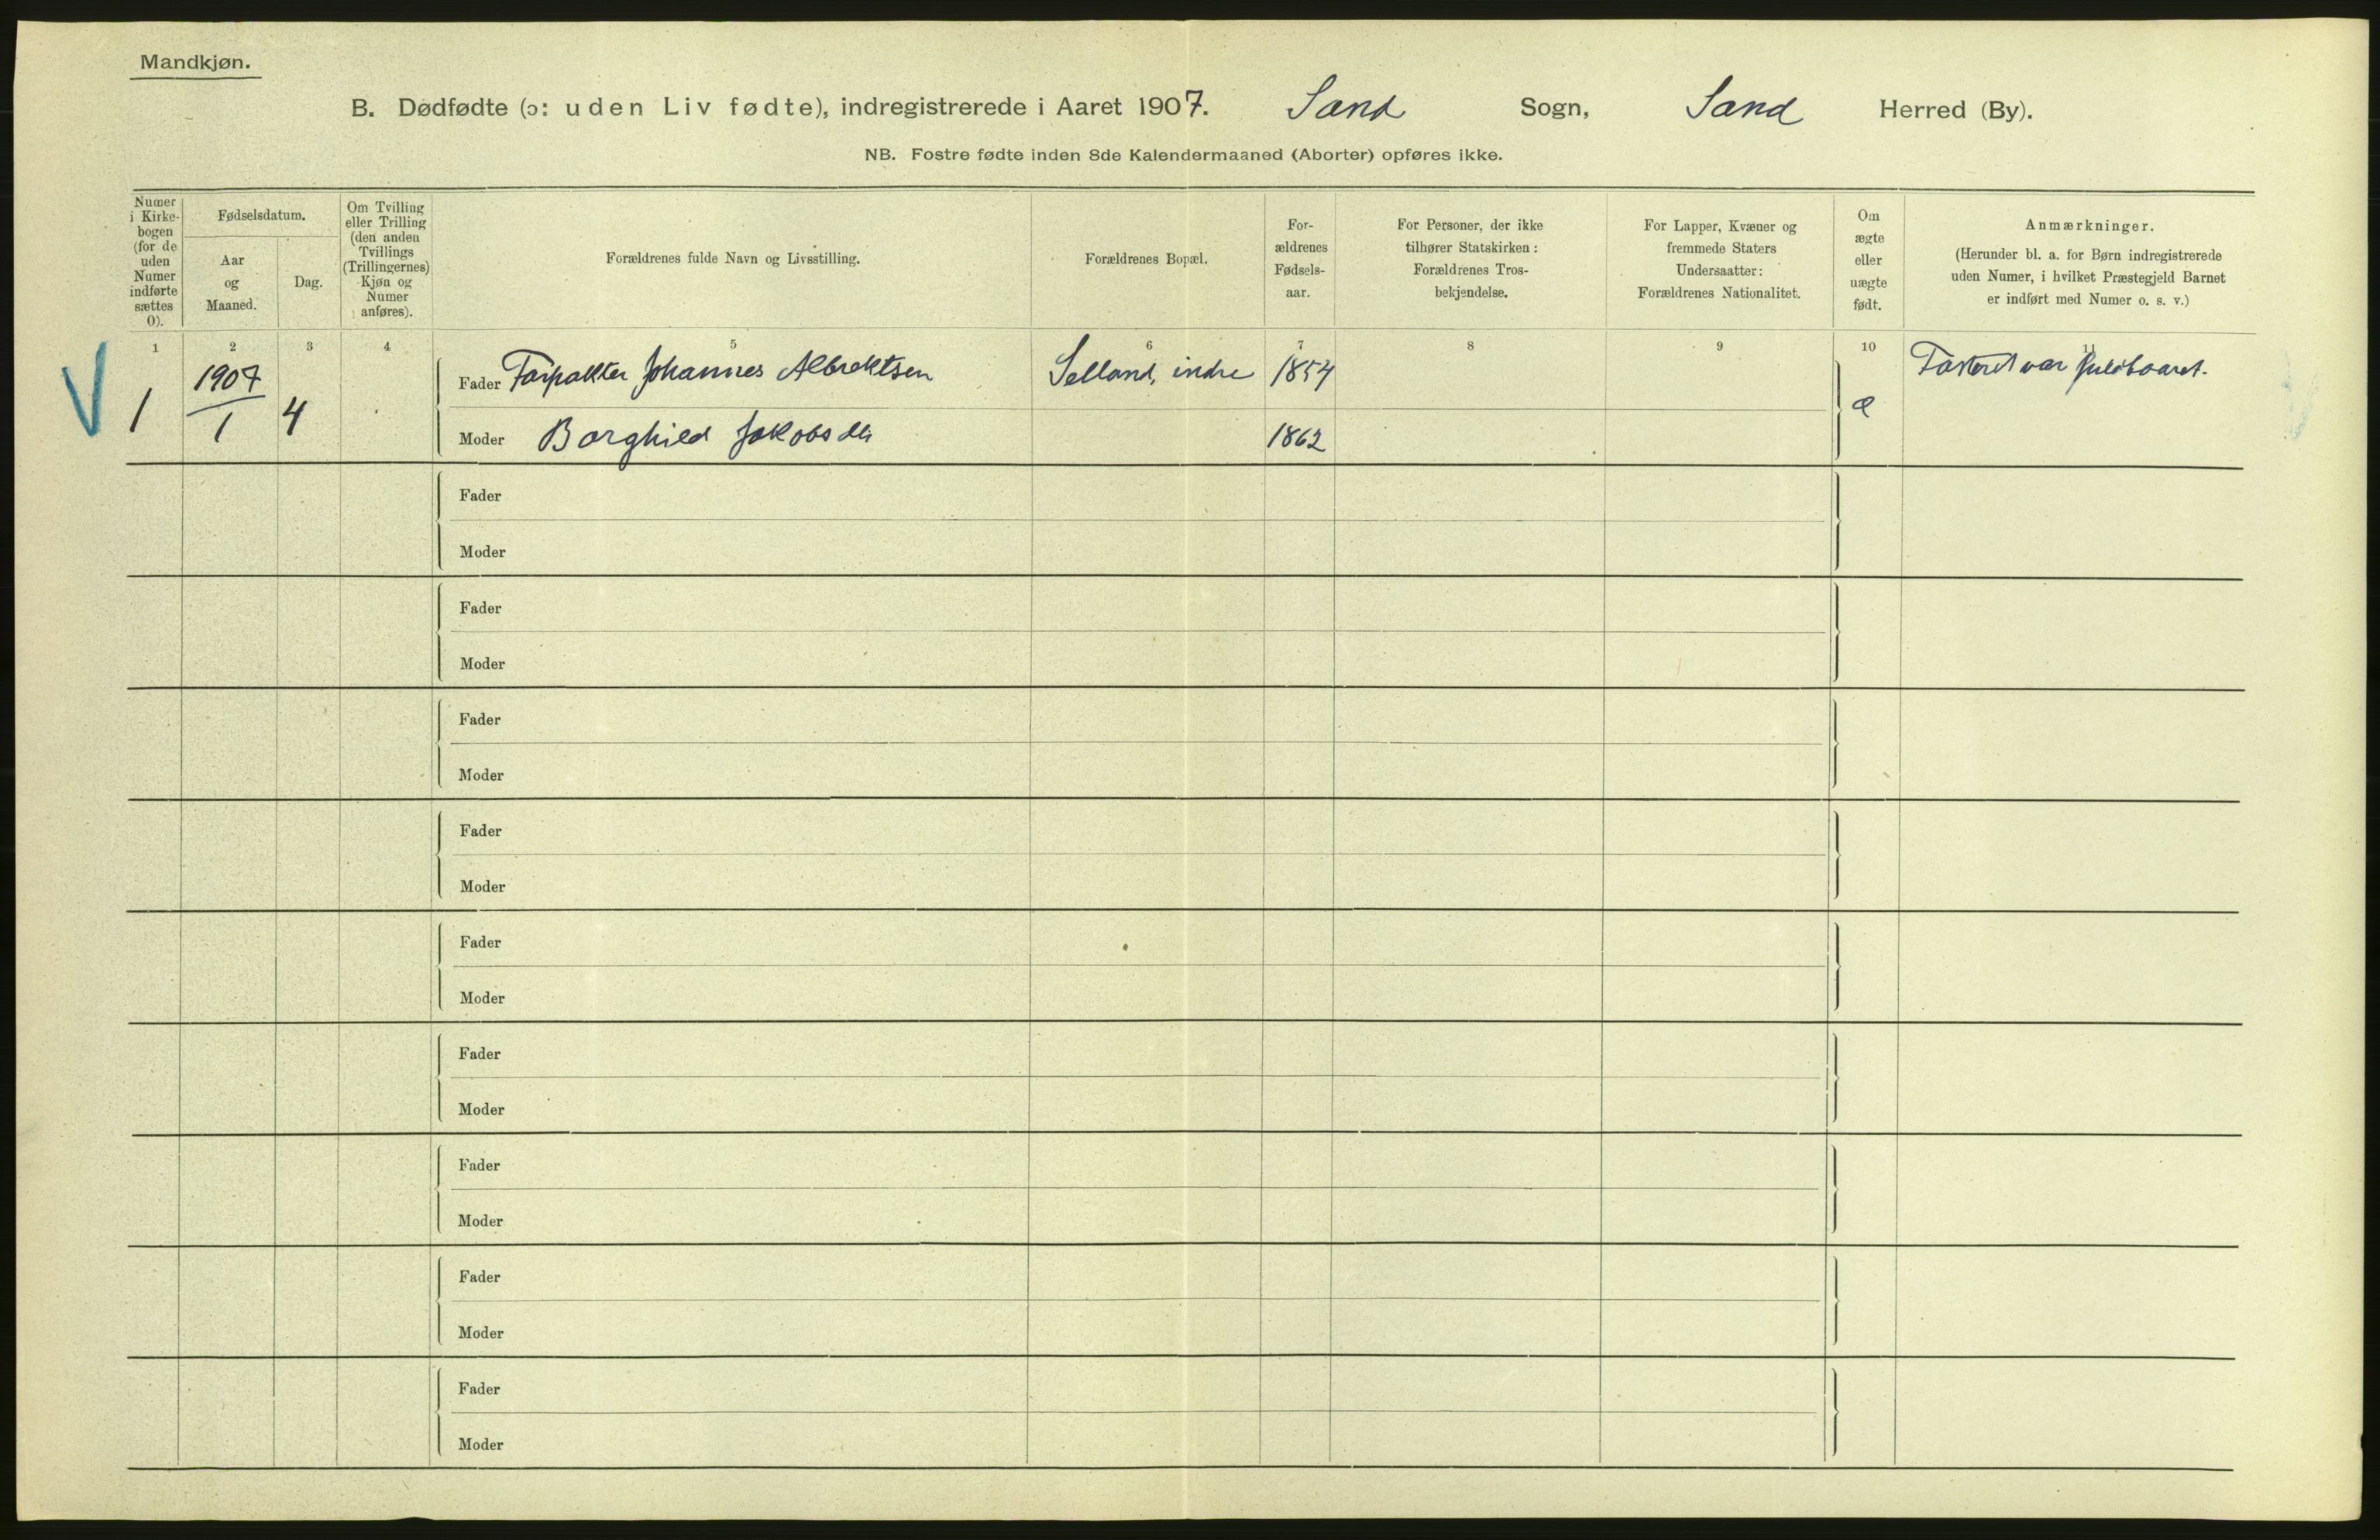 Mandkjøn.
B. Dødfødte (ɔ: uden Liv fødte), indregistrerede i Aaret 1907. Sand Sogn, Sand Herred (By).
NB. Fostre fødte inden 8de Kalendermaaned (Aborter) opføres ikke.
Numer
i Kirke-
bogen
(for de
uden
Numer
indførte
sættes
0).
Fødselsdatum.
Aar
og
Maaned.
Dag.
Om Tvilling
eller Trilling
(den anden
Tvillings
(Trillingernes)
Kjøn og
Numer
anføres).
Forældrenes fulde Navn og Livsstilling.
Forældrenes Bopæl.
For-
ældrenes
Fødsels-
aar.
For Personer, der ikke
tilhører Statskirken:
Forældrenes Tros-
bekjendelse.
For Lapper, Kvæner og
fremmede Staters
Undersaatter:
Forældrenes Nationalitet.
Om
ægte
eller
uægte
født.
Anmærkninger.
(Herunder bl. a. for Børn indregistrerede
uden Numer, i hvilket Præstegjeld Barnet
er indført med Numer o. s. v.)
1 2 3 4 5 6 7 8 9 10 11
V 1 1907 1 4
Fader Forpakter Johannes Albrektsen Selland, indre 1854 æ Fosteret var fuldbaaret.
Moder Borghild Jakobsdtr 1862
Fader
Moder
Fader
Moder
Fader
Moder
Fader
Moder
Fader
Moder
Fader
Moder
Fader
Moder
Fader
Moder
Fader
Moder